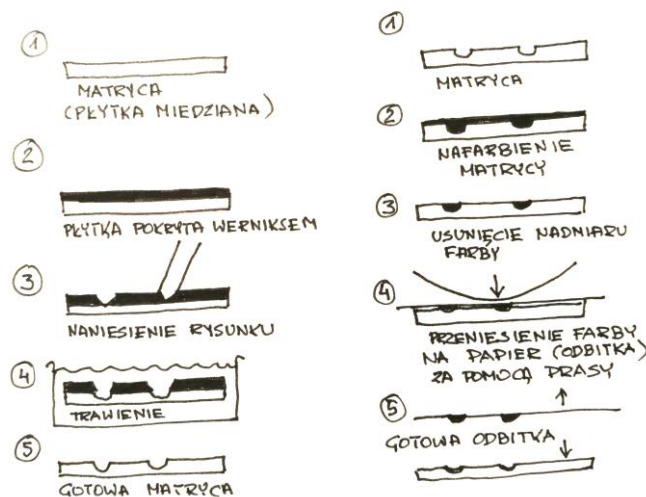 1
MATRYCA
(PŁYTKA MIEDZIANA)
2
PŁYTKA POKRYTA WERNIKSEM
3
NANIESIENIE RYSUNKU
4
TRAWIENIE
5
GOTOWA MATRYCA
1
MATRYCA
2
NAFARBIENIE
MATRYCY
3
USUNIĘCIE NADMIARU
FARBY
4
PRZENIESIENIE FARBY
NA PAPIER (ODBITKA)
ZA POMOCĄ PRASY
5
GOTOWA ODBITKA